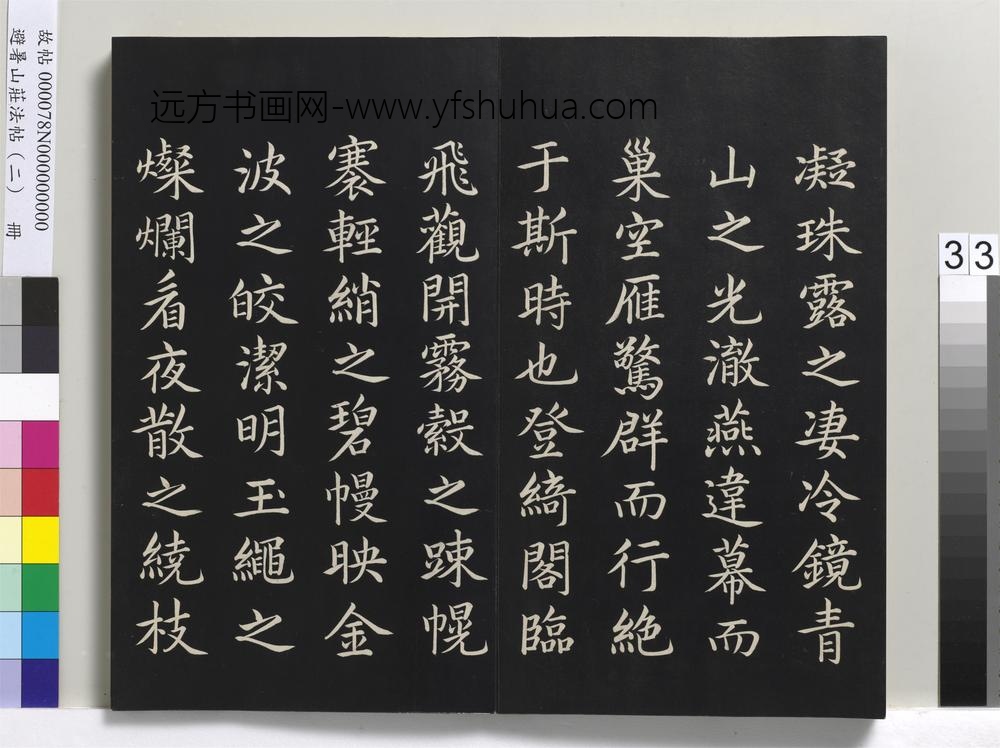 远方书画网-www.yfshuhua.com
凝珠露之凄冷鏡青
山之光澈燕違幕而
巢空雁驚群而行絶
于斯時也登綺閣臨
飛觀開霧縠之踈幌
褰輕綃之碧幔映金
波之皎潔明玉繩之
燦爛看夜散之繞枝
故帖 000078N000000000
避暑山莊法帖（二） 冊
33